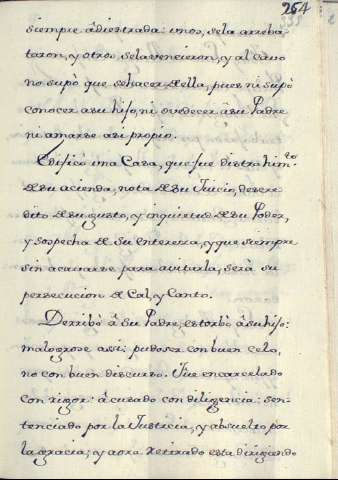 254
siempre âdiestrada: unos, sela arreba-
taron, y otros selavencieron, y al cavo
no supò que sehacer della, pues ni supò
conocer asu hijo, ni ovedecer âsu Padre
ni amarse asi propio.
Edificò una Casa, que fue distrahim.to
desu acienda, nota desu Juicio, descre-
dito desugusto, y inquietud desu Poder,
y sospecha de su Entereza, y que siempre
sin acavarse para avitarla, serà su
persecucion de Cal, y Canto.
Derribò â su Padre, estorbò âsuhijo:
malogrose asi: pudo ser con buen celo,
no con buen discurso. Fue encarcelado
con rigor: âcusado con diligencia: sen-
tenciado por la Justicia, y absuelto por
la gracia; y aora retirado esta dirigiendo